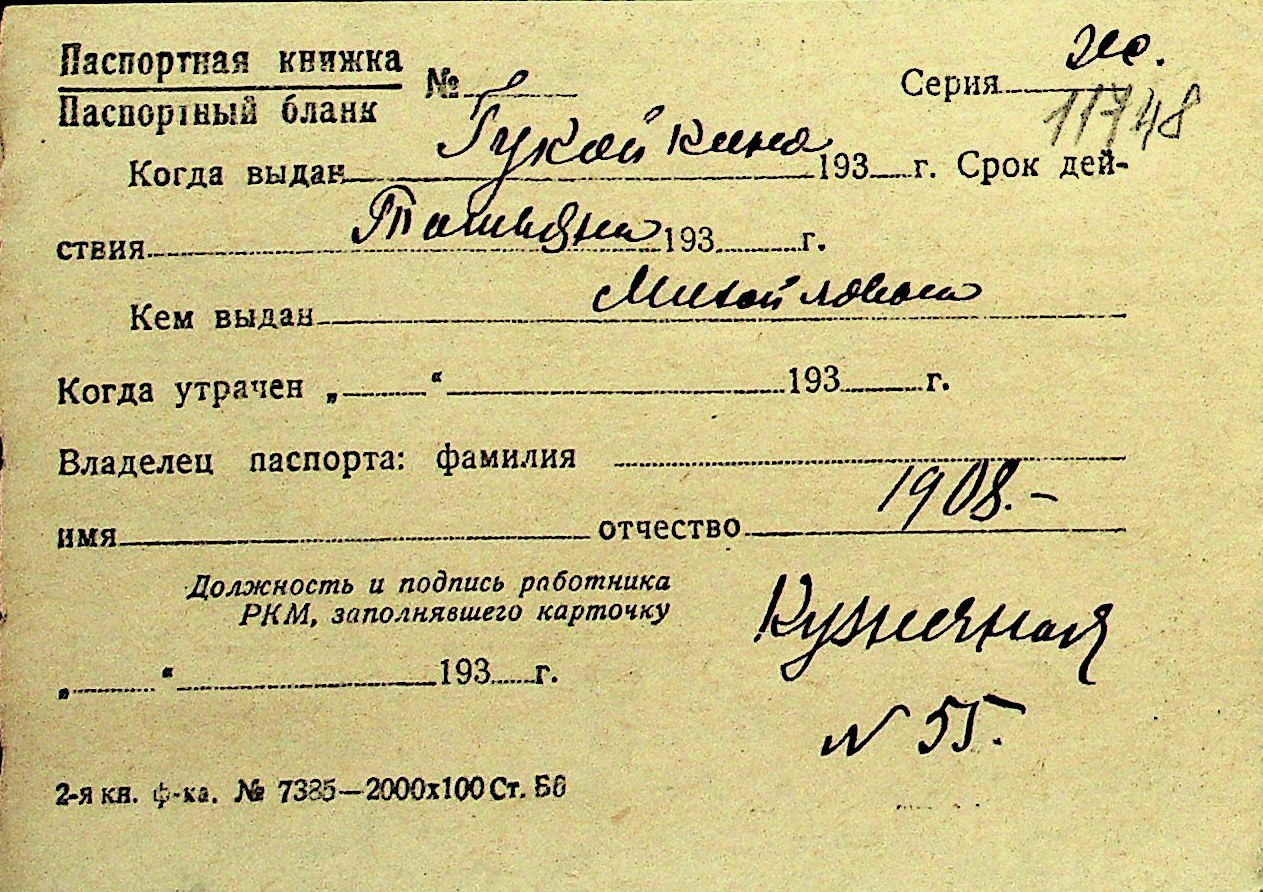 Паспортная книжка
Паспортный бланк
№ Серия жс.
11748
Гукайкина
Когда выдан 193 г. Срок дей-
Татьяна
ствия 193 г.
Михайловна
Кем выдан
Когда утрачен „ “ 193 г.
Владелец паспорта: фамилия
1908.-
имя отчество
Должность и подпись работника
РКМ, заполнявшего карточку
Кузнечная
„ “ 193 г.
N 55.
2-я кн. ф-ка. № 7385—2000х100 Ст. Б6